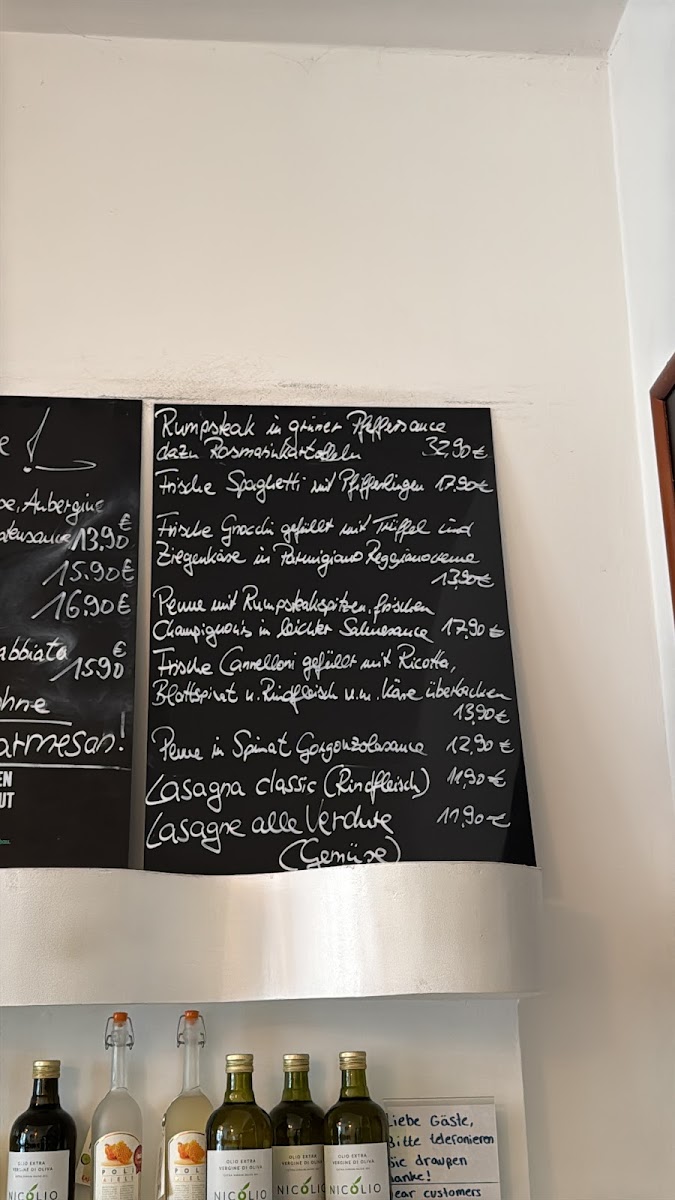 e!
be, Aubergine
atensauce 13,90 €
15.90 €
16.90 €
abbiata 15,90 €
ohne
armesan!
EN
UT
Rumpsteak in grüner Pfeffersauce
dazu Rosmarinkartoffeln 32,90 €
Frische Spaghetti mit Pfifferlingen 17,90 €
Frische Gnocchi gefüllt mit Trüffel und
Ziegenkäse in Parmigiano Reggianocreme
13,90 €
Penne mit Rumpsteakspitzen, frischen
Champignons in leichter Sahnesauce 17,90 €
Frische Cannelloni gefüllt mit Ricotta,
Blattspinat u. Rindfleisch u. m. Käse überbacken
13,90 €
Penne in Spinat Gorgonzolasauce 12,90 €
Lasagna classic (Rindfleisch) 11,90 €
Lasagne alle Verdure 11,90 €
(Gemüse)
OLIO EXTRA
VERGINE DI OLIVA
NICOLIO
POLI
POLI
OLIO EXTRA
VERGINE DI OLIVA
NICOLIO
OLIO EXTRA
VERGINE DI OLIVA
NICOLIO
OLIO EXTRA
VERGINE DI OLIVA
NICOLIO
Liebe Gäste,
Bitte telefonieren
Sie draußen
Danke!
Dear customers